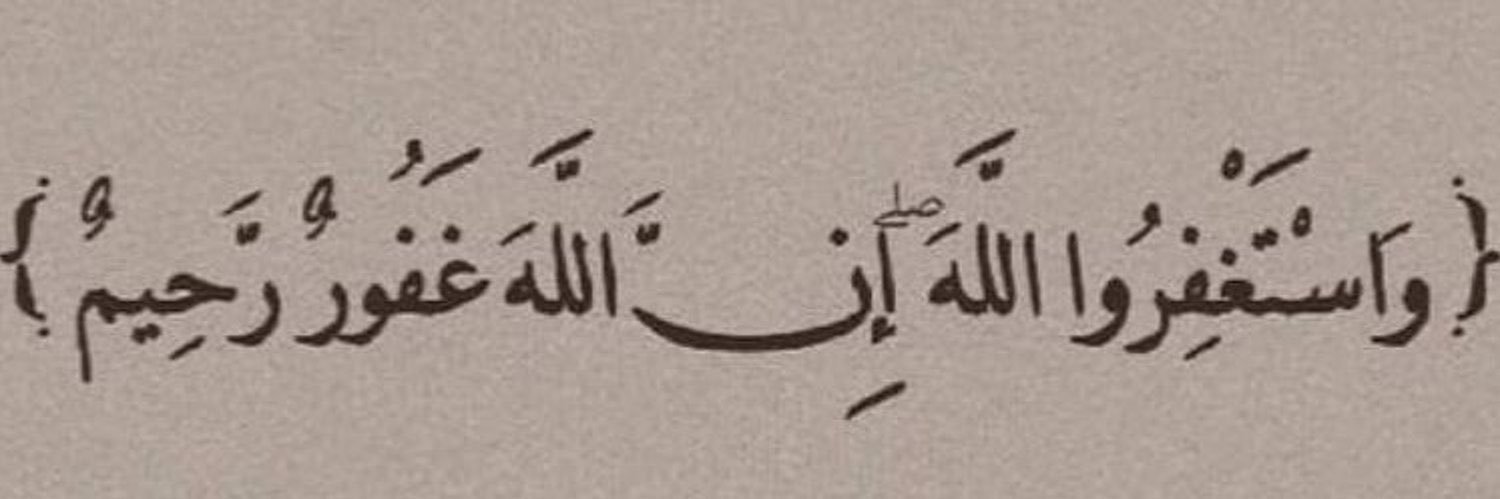 {وَاسْتَغْفِرُوا اللَّهَ ۖ إِنَّ اللَّهَ غَفُورٌ رَّحِيمٌ}